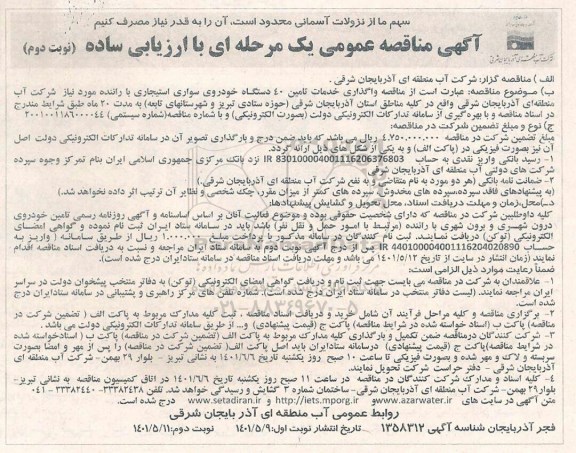 سهم ما از نزولات آسمانی محدود است، آن را به قدر نیاز مصرف کنیم
آگهی مناقصه عمومی یک مرحله ای با ارزیابی ساده (نوبت دوم)
الف ) مناقصه گزار: شرکت آب منطقه ای آذربایجان شرقی .
ب) موضوع مناقصه: عبارت است از مناقصه واگذاری خدمات تامین ۴۰ دستگاه خودروی سواری استیجاری با راننده مورد نیاز شرکت آب
منطقه‌ای آذربایجان شرقی واقع در کلیه مناطق استان آذربایجان شرقی (حوزه ستادی تبریز و شهرستانهای تابعه) به مدت ۲۰ ماه طبق شرایط مندرج
در اسناد مناقصه و با بهره‌گیری از سامانه تدارکات الکترونیکی دولت (بصورت الکترونیکی) و با شماره مناقصه(شماره سیستمی) ۲۰۰۱۰۰۱۱۸۶۰۰۰۰۴۴
ج) نوع و مبلغ تضمین شرکت در مناقصه:
مبلغ تضمین شرکت در مناقصه ۴,۷۵۰,۰۰۰,۰۰۰ ریال می باشد که باید ضمن درج و بارگذاری تصویر آن در سامانه تدارکات الکترونیکی دولت اصل
آن نیز بصورت فیزیکی در (پاکت الف) و به یکی از شکل های ذیل ارائه گردد.
۱– رسید بانکی واریز نقدی به حساب IR 830100004001116206376803 نزد بانک مرکزی جمهوری اسلامی ایران بنام تمرکز وجوه سپرده
شرکت های دولتی آب منطقه ای آذربایجان شرقی
۲– ضمانت نامه بانکی (هر دو مورد به نام متقاضی و به نفع شرکت آب منطقه ای آذربایجان شرقی.)
(به پیشنهادهای فاقد سپرده،سپرده های مخدوش، سپرده های کمتر از میزان مقرر، چک شخصی و نظایر آن ترتیب اثر داده نخواهد شد.)
د–)محل،زمان و مهلت دریافت اسناد، محل تحویل و گشایش پیشنهادها:
کلیه داوطلبین شرکت در مناقصه که دارای شخصیت حقوقی بوده و موضوع فعالیت آنان بر اساس اساسنامه و آگهی روزنامه رسمی تامین خودروی
درون شهری و برون شهری با راننده (مرتبط با امور حمل و نقل نفر) باشد باید در سامانه ستاد ایران ثبت نام نموده و گواهی امضای
الکترونیکی (توکن) دریافت نمایند. ثبت نام کنندگان در سامانه مذکور با پرداخت مبلغ ۱,۰۰۰,۰۰۰ ریال از طریق سامانه (واریز به
حساب IR 440100004001116204020890 پس از درج آگهی نوبت دوم به سامانه ستاد ایران مراجعه و نسبت به دریافت اسناد مناقصه اقدام
نمایند (زمان انتشار در سایت از تاریخ ۱۴۰۱/۵/۱۲ می باشد و مهلت دریافت اسناد مناقصه در سامانه ستادایران درج شده است).
ضمناً رعایت موارد ذیل الزامی است:
۱– علاقمندان به شرکت در مناقصه می بایست جهت ثبت نام و دریافت گواهی امضای الکترونیکی (توکن) به دفاتر منتخب پیشخوان دولت در سراسر
ایران مراجعه نمایند. (لیست دفاتر منتخب در سامانه ستاد ایران درج شده است). شماره تلفن های مرکز راهبری و پشتیبانی در سامانه ستادایران درج
شده است
۲– برگزاری مناقصه و کلیه مراحل فرآیند آن شامل خرید و دریافت اسناد مناقصه ، ثبت کلیه مدارک مربوط به پاکت الف ( تضمین شرکت در
مناقصه) پاکت ب (اسناد خواسته شده در شرایط مناقصه) پاکت ج (قیمت پیشنهادی) و... از طریق سامانه تدارکات الکترونیکی دولت می باشد.
۳– شرکت کنندگان درمناقصه ضمن تکمیل و بارگذاری کلیه مدارک مربوط به پاکت الف (تضمین شرکت در مناقصه) پاکت ب (اسنادخواسته شده
در شرایط مناقصه)پاکت ج (قیمت پیشنهادی) درسامانه ستادایران باید اصل پاکت الف( تضمین شرکت در مناقصه) را پس از مهر و امضا بصورت
سربسته و لاک و مهر شده و بصورت فیزیکی تا ساعت ۱۰ صبح روز یکشنبه تاریخ ۱۴۰۱/۶/۶ به نشانی تبریز - بلوار ۲۹ بهمن– شرکت آب منطقه ای
آذربایجان شرقی - دفتر حراست شرکت تحویل نمایند.
۴– کلیه اسناد و مدارک شرکت کنندگان در مناقصه در ساعت ۱۱ صبح روز یکشنبه تاریخ ۱۴۰۱/۶/۶ در اتاق کمیسیون مناقصه به نشانی تبریز–
بلوار۲۹ بهمن– شرکت آب منطقه ای آذربایجان شرقی– ساختمان شماره ۳ گشایش و رسیدگی خواهد شد. تلفن ۳۳۳۸۲۴۳۸ - ۳۳۳۸۲۴۴۰ - ۰۴۱
متن آگهی در سایت های www.azarwater.ir و http://iets.mporg.ir و www.setadiran.ir درج شده است.
روابط عمومی آب منطقه ای آذربایجان شرقی
فجر آذربایجان شناسه آگهی ۱۳۵۸۳۱۲ تاریخ انتشار نوبت اول: ۱۴۰۱/۵/۹ نوبت دوم: ۱۴۰۱/۵/۱۱